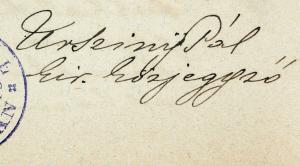 Urszinyi Pál
kir. közjegyző